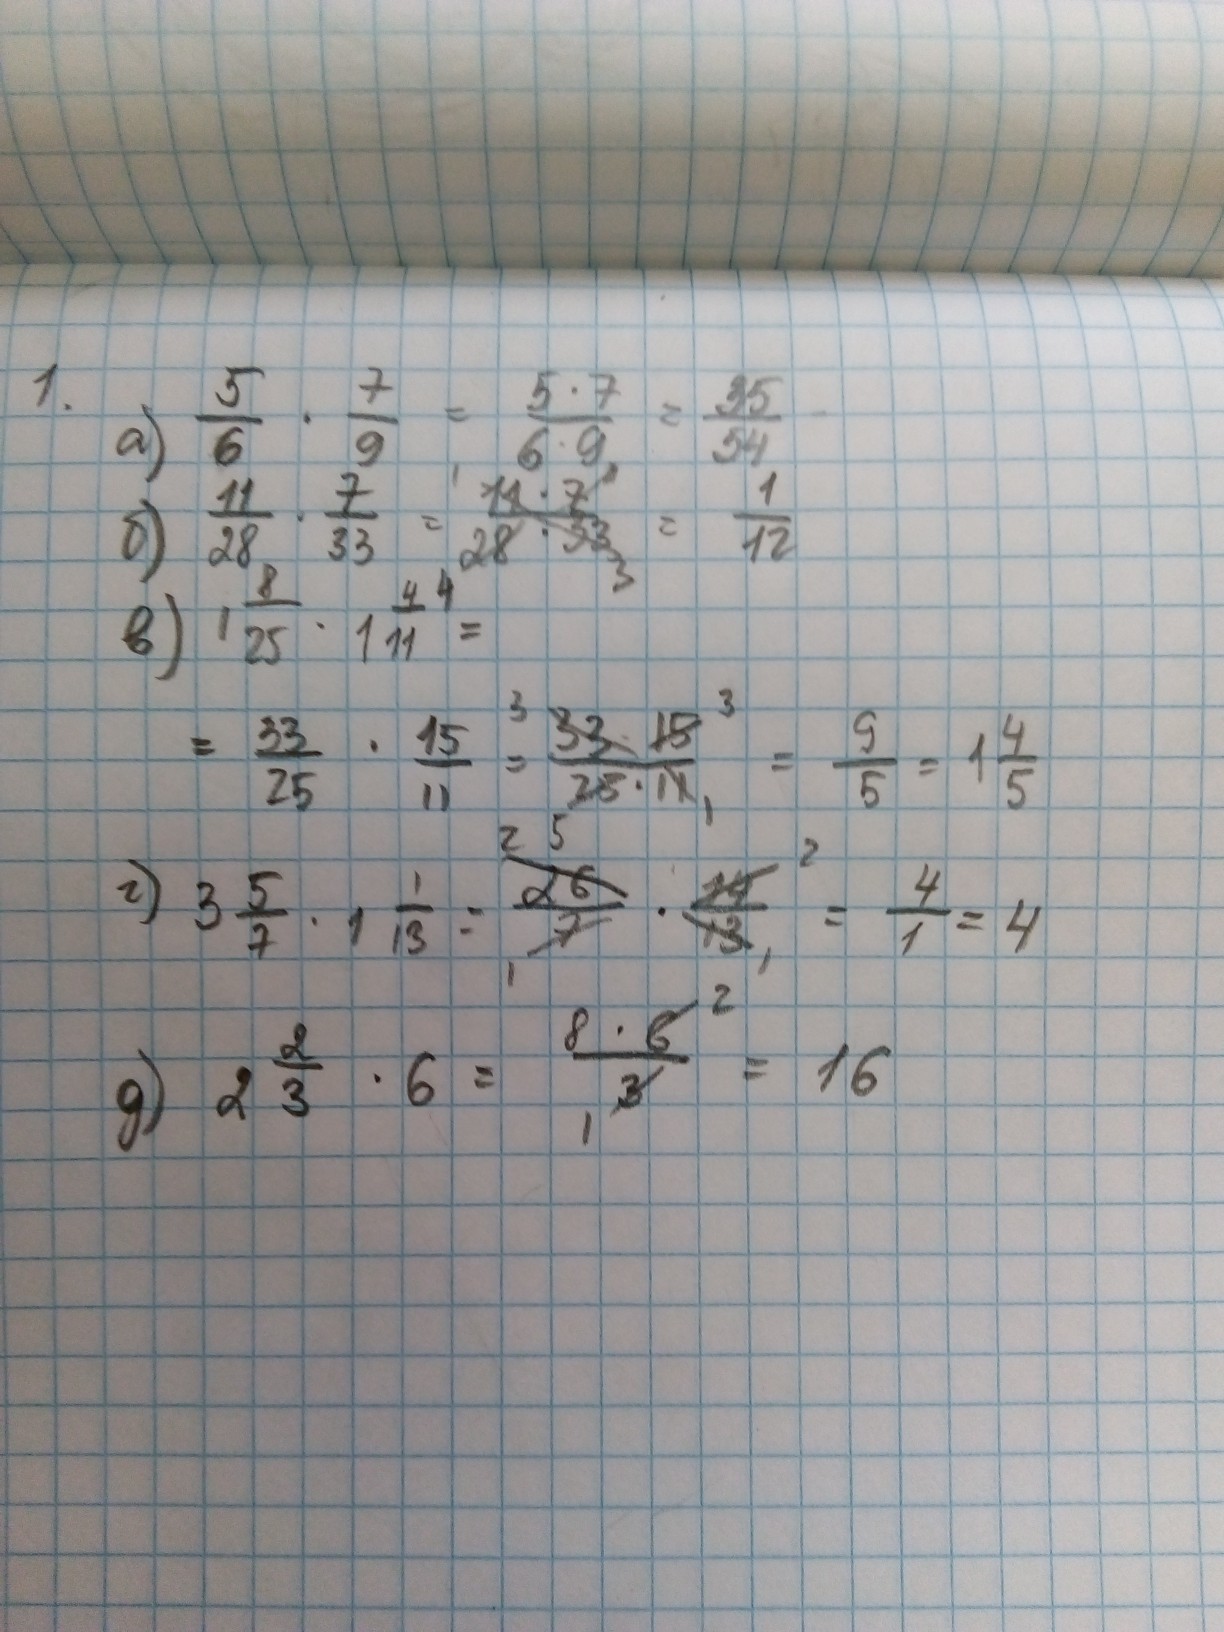 1.
а) 5/6 · 7/9 = 5·7/6·9 = 35/54
б) 11/28 · 7/33 = 11·7/28·33 3 = 1/12
в) 1 8/25 · 1 4/11 4 =
= 33/25 · 15/11 = 3 33·15 3/25·11 1 = 9/5 = 1 4/5
2 5
г) 3 5/7 · 1 1/13 = 26/7 1 · 14 2/13 1 = 4/1 = 4
д) 2 2/3 · 6 = 8·6 2/1 3 = 16